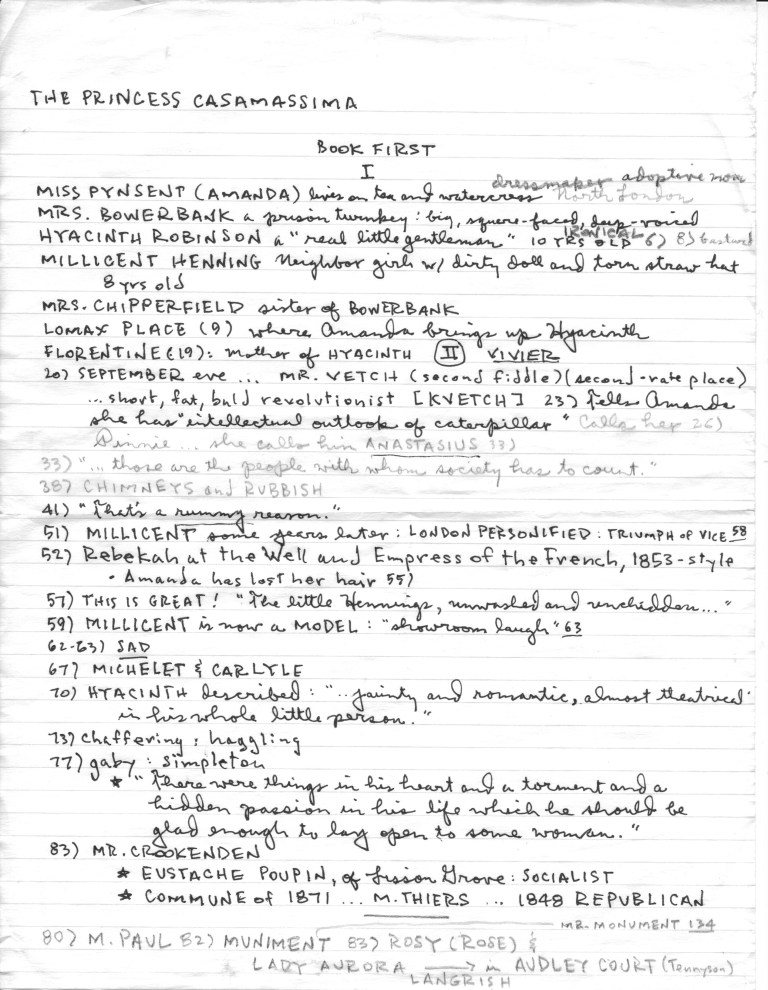 THE PRINCESS CASAMASSIMA
BOOK FIRST
I
dressmaker adoptive mom
MISS PYNSENT (AMANDA) lives on tea and watercress North London
MRS. BOWERBANK a prison turnkey: big, square-faced, deep-voiced
IRONICAL
HYACINTH ROBINSON a "real little gentleman" 10 YRS OLD 6) 8) bastard
MILLICENT HENNING Neighbor girl w/ dirty doll and torn straw hat
8 yrs old
MRS. CHIPPERFIELD sister of BOWERBANK
LOMAX PLACE (9) where Amanda brings up Hyacinth
FLORENTINE (19): mother of HYACINTH II VIVIER
20) SEPTEMBER eve ... MR. VETCH (second fiddle) (second-rate place)
... short, fat, bald revolutionist [KVETCH] 23) tells Amanda
she has "intellectual outlook of caterpillar" Calls her 26)
Pinnie ... she calls him ANASTASIUS 33)
33) "... those are the people with whom society has to count."
38) CHIMNEYS and RUBBISH
41) "That's a rummy reason."
51) MILLICENT some years later: LONDON PERSONIFIED: TRIUMPH OF VICE 58
52) Rebekah at the Well and Empress of the French, 1853-style
• Amanda has lost her hair 55)
57) THIS IS GREAT! "The little Hennings, unwashed and unchidden..."
59) MILLICENT is now a MODEL: "showroom laugh" 63
62-63) SAD
67) MICHELET & CARLYLE
70) HYACINTH described: "..jaunty and romantic, almost theatrical
in his whole little person."
73) chaffering: haggling
77) gaby: simpleton
* "There were things in his heart and a torment and a
hidden passion in his life which he should be
glad enough to lay open to some woman."
83) MR. CROOKENDEN
* EUSTACHE POUPIN, of Lisson Grove: SOCIALIST
* COMMUNE OF 1871 ... M. THIERS ... 1848 REPUBLICAN
MR. MONUMENT 134
80) M. PAUL 82) MUNIMENT 83) ROSY (ROSE) &
LADY AURORA → in AUDLEY COURT (Tennyson)
LANGRISH